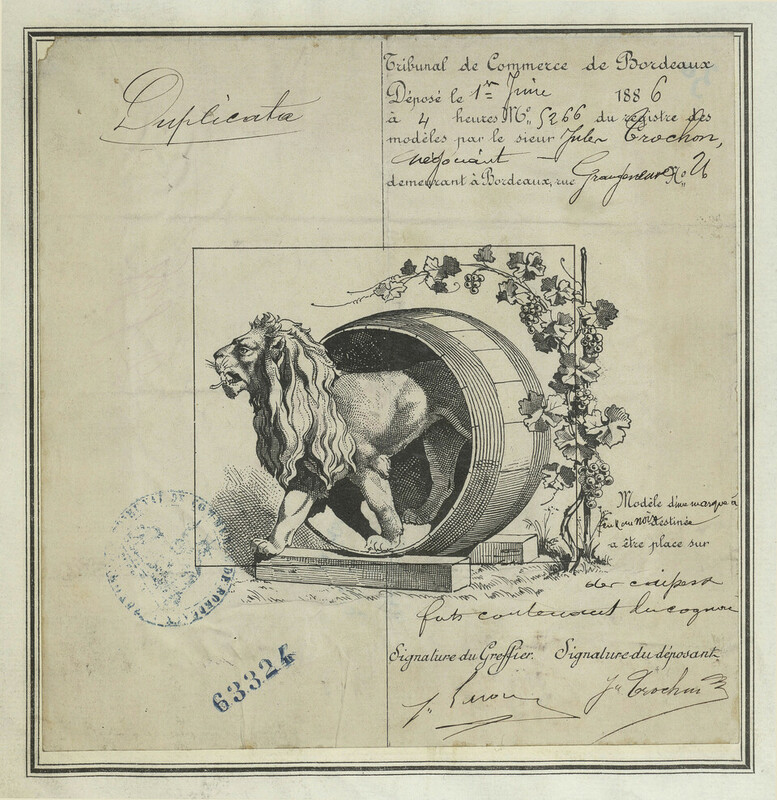 Duplicata
Tribunal de Commerce de Bordeaux
Déposé le 1er Juin 1886
à 4 heures No. 5266 du registre des
modèles par le sieur Jules Trochon,
négociant
demeurant à Bordeaux, rue No. 26
Modèle d'une marque à
feu ou noir destinée
a être place sur
des caisses et
futs contenant du cognac
Signature du Greffier. Signature du déposant.
Js Trochon
63324